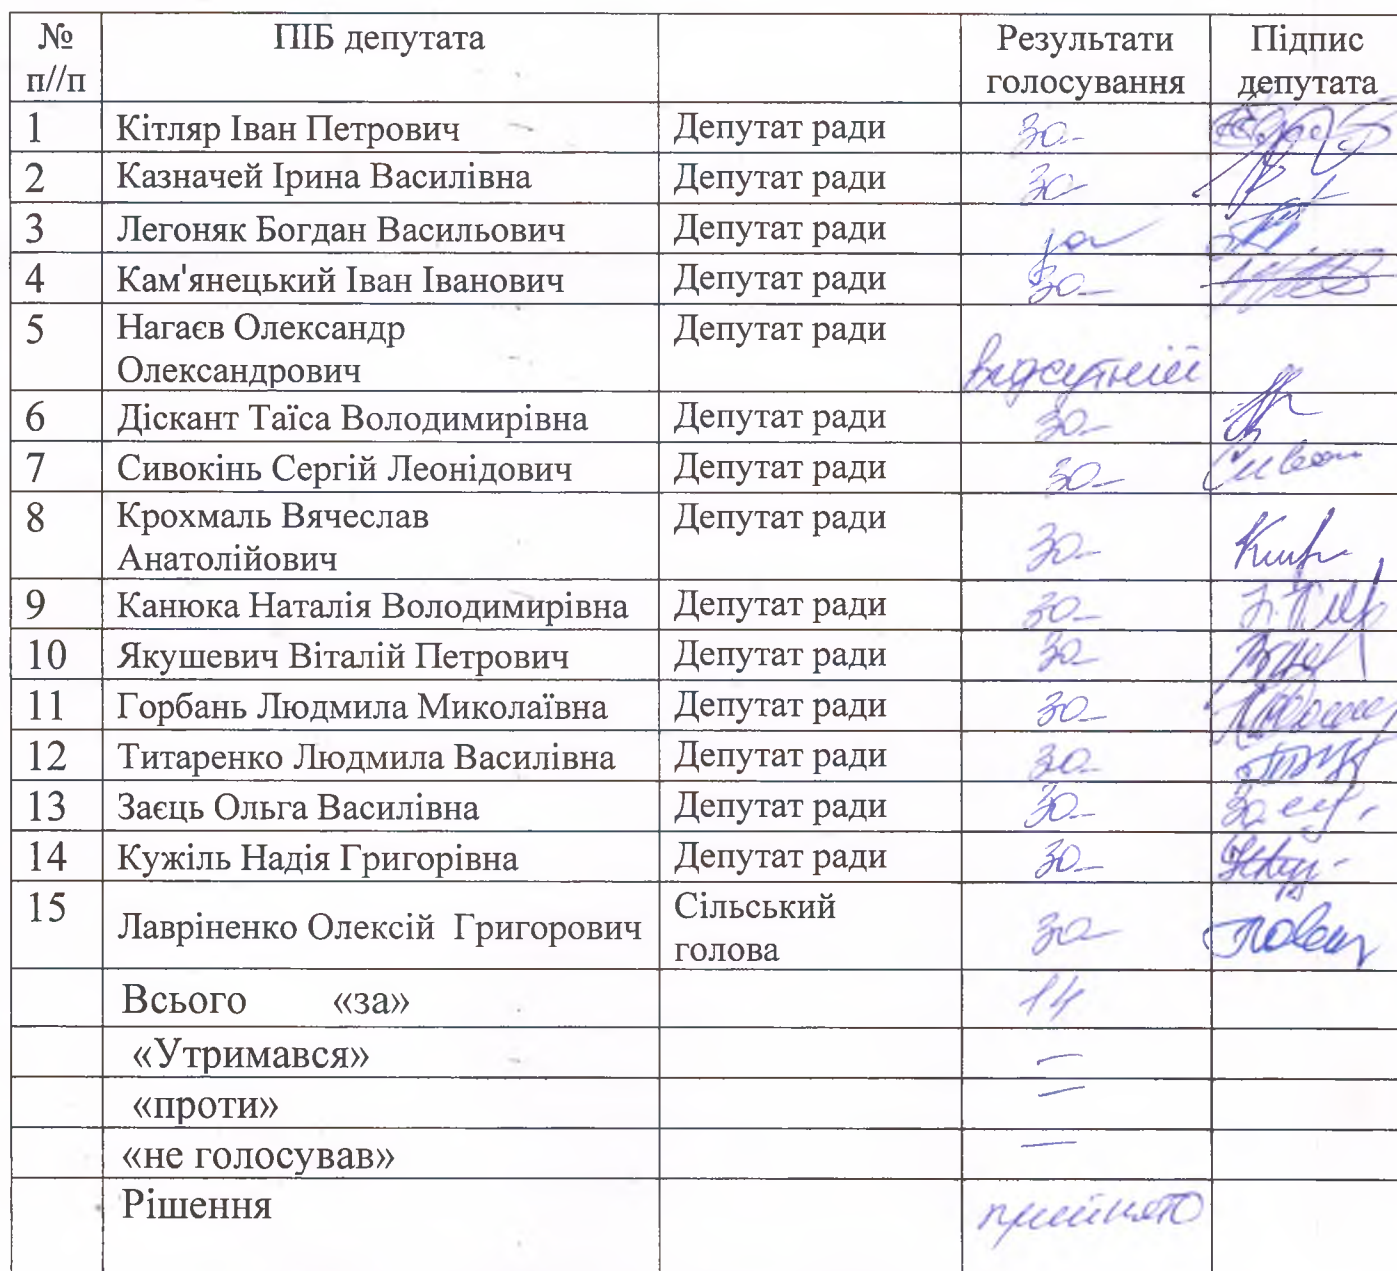 № ПІБ депутата Результати Підпис
п//п голосування депутата
1 Кітляр Іван Петрович Депутат ради за
2 Казначей Ірина Василівна Депутат ради за
3 Легоняк Богдан Васильович Депутат ради за
4 Кам'янецький Іван Іванович Депутат ради за
5 Нагаєв Олександр Депутат ради
Олександрович відсутній
6 Діскант Таїса Володимирівна Депутат ради за
7 Сивокінь Сергій Леонідович Депутат ради за
8 Крохмаль Вячеслав Депутат ради
Анатолійович за
9 Канюка Наталія Володимирівна Депутат ради за
10 Якушевич Віталій Петрович Депутат ради за
11 Горбань Людмила Миколаївна Депутат ради за
12 Титаренко Людмила Василівна Депутат ради за
13 Заєць Ольга Василівна Депутат ради за
14 Кужіль Надія Григорівна Депутат ради за
15 Лавріненко Олексій Григорович Сільський за
голова
Всього «за» 14
«Утримався» —
«проти» —
«не голосував» —
Рішення прийнято